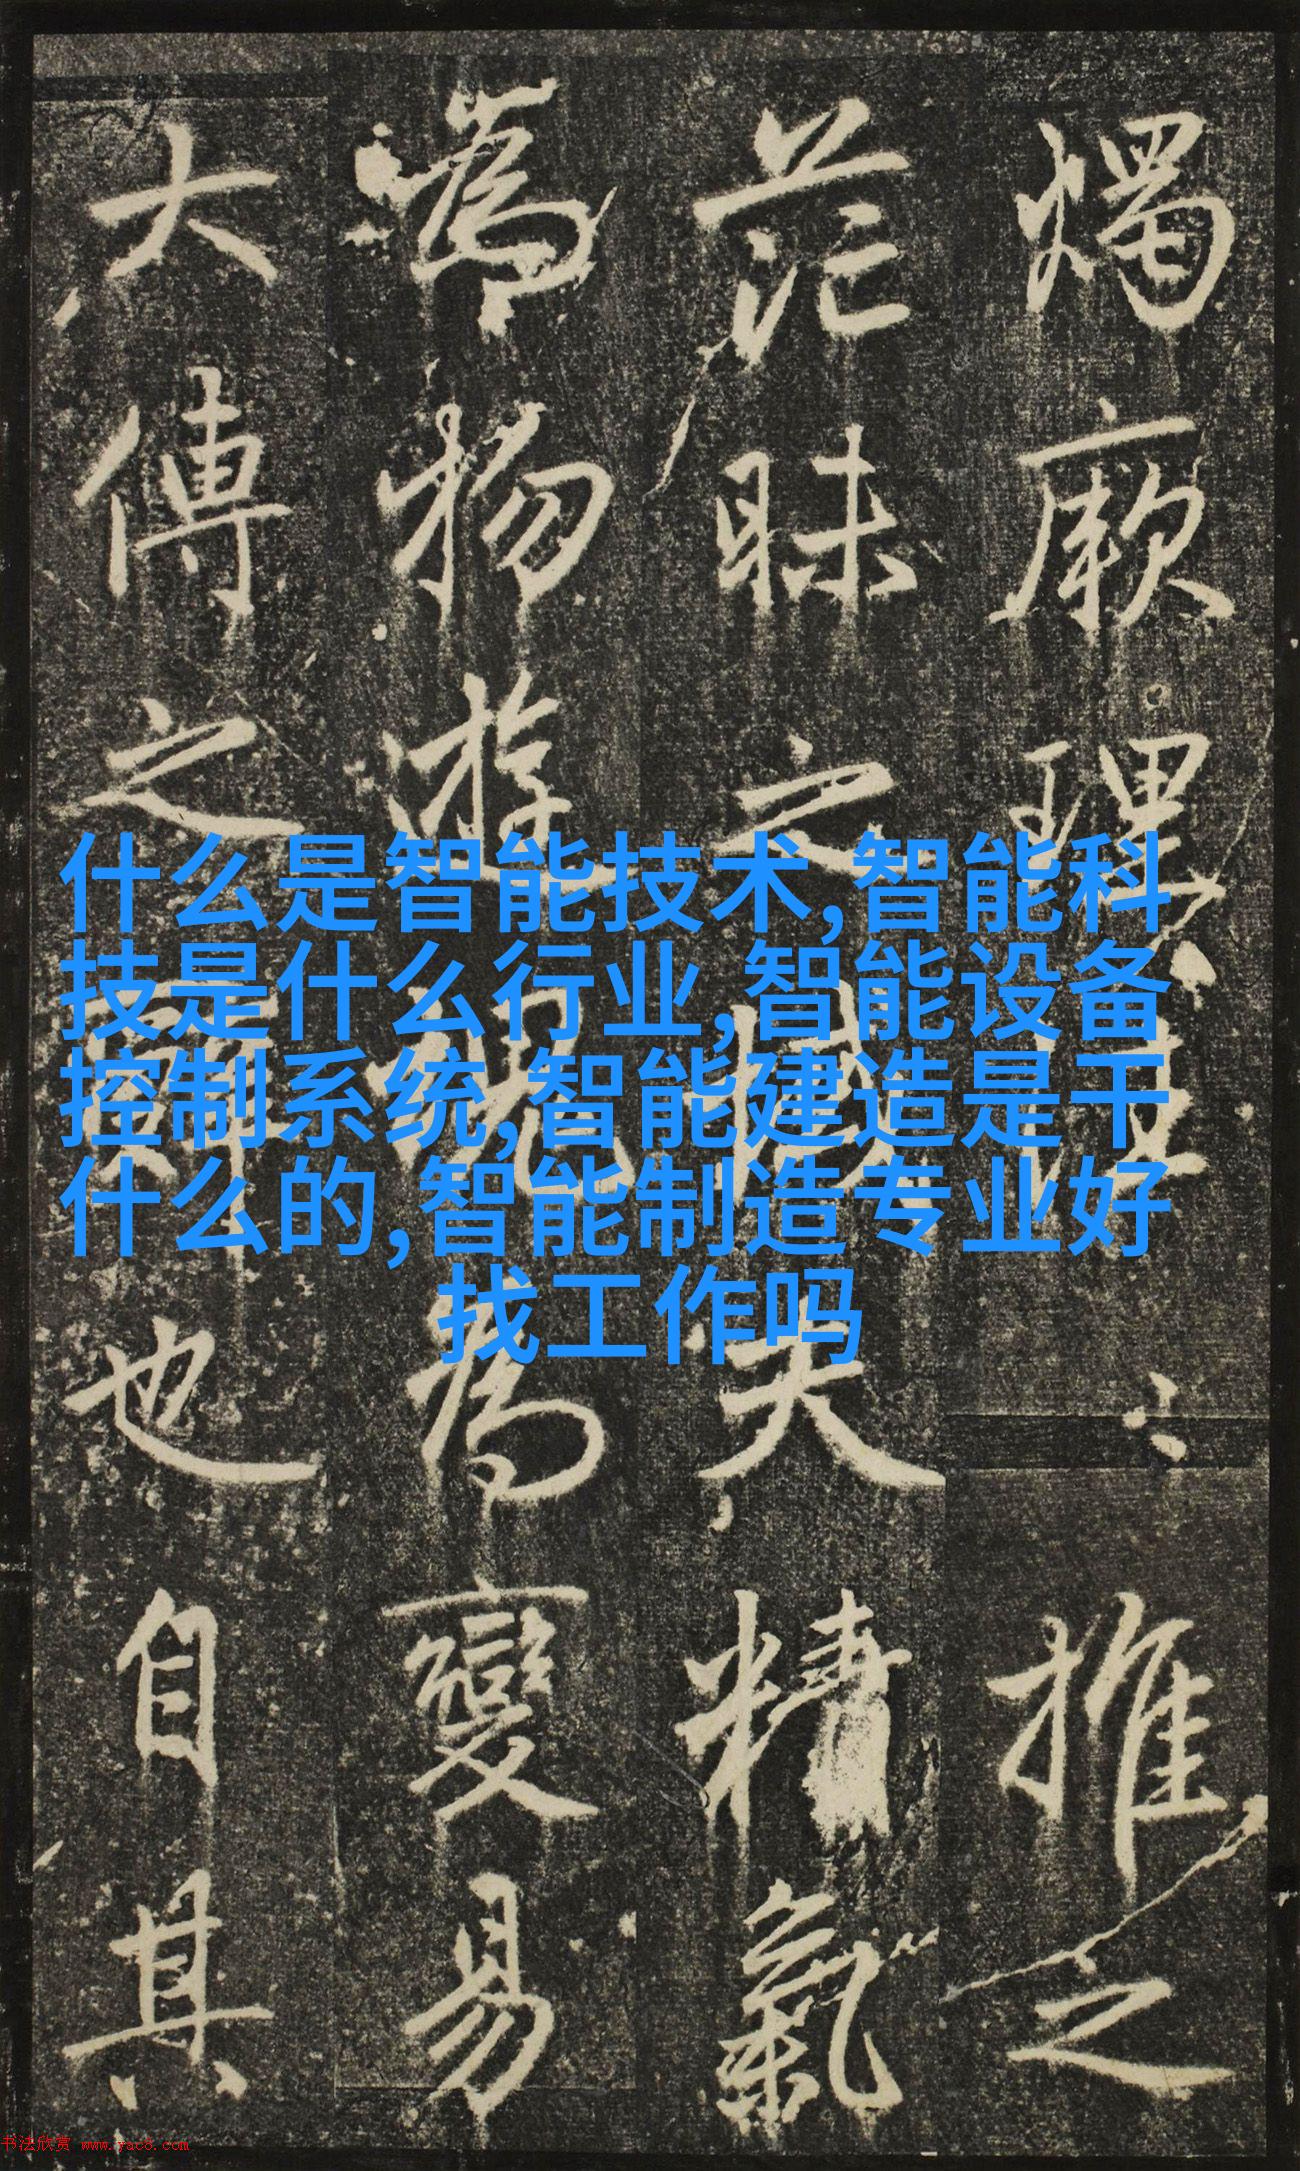 什么是智能技术,智能科
技是什么行业,智能设备
控制系统,智能建造是干
什么的,智能制造专业好
找工作吗
燭厥理推之
茫昧之夫精氣
為物遊魂為變易
大傳之辭也自其
书法欣赏 www.yac8.com